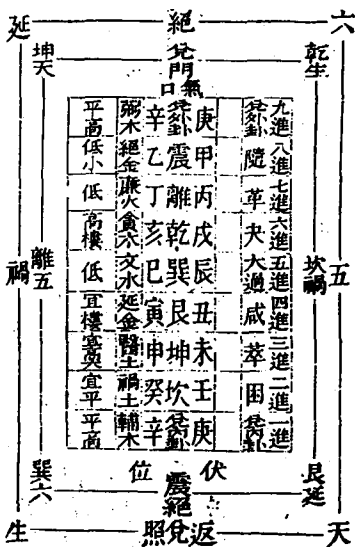 六 絕 延
乾生 兌門 坤天
氣口
九進 八進 七進 六進 五進 四進 三進 二進 一進
兌外卦 隨 革 夬 大過 咸 萃 困 兌內卦
庚 甲 丙 戌 辰 丑 未 壬 庚
兌外卦 震 離 乾 巽 艮 坤 坎 兌內卦
辛 乙 丁 亥 巳 寅 申 癸 辛
弼木 絕金 廉火 貪木 文水 延金 醫土 禍土 輔木
平高 低小 低 高樓 低 宜樓 宜平 平高
五 坎禍 離五 禍
伏位
艮延 震絕 巽六
天 返兌照 生